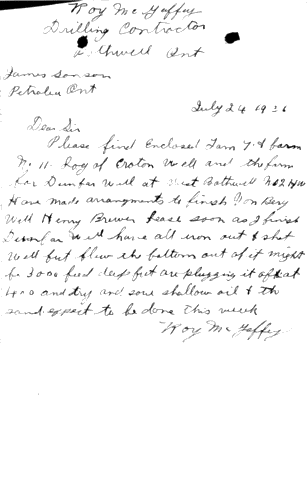 Roy Mc Gaffey
Drilling Contractor
Ont
James
Petrolia Ont
July 24 19
Dear Sir
Please find Enclosed
No 11. Log of Croton Well and the
for Dunfar Well at West Bothwell
Have made arrangments to finish
Well Henry Brewer lease soon as I finish
Dunfar Well have all iron out & shot
Well but blew the bottom out of it might
be 3000 feed deep but are plugging it off at
400 and try and save shallow oil & the
sand expect to be done this week
Roy Mc Gaffey